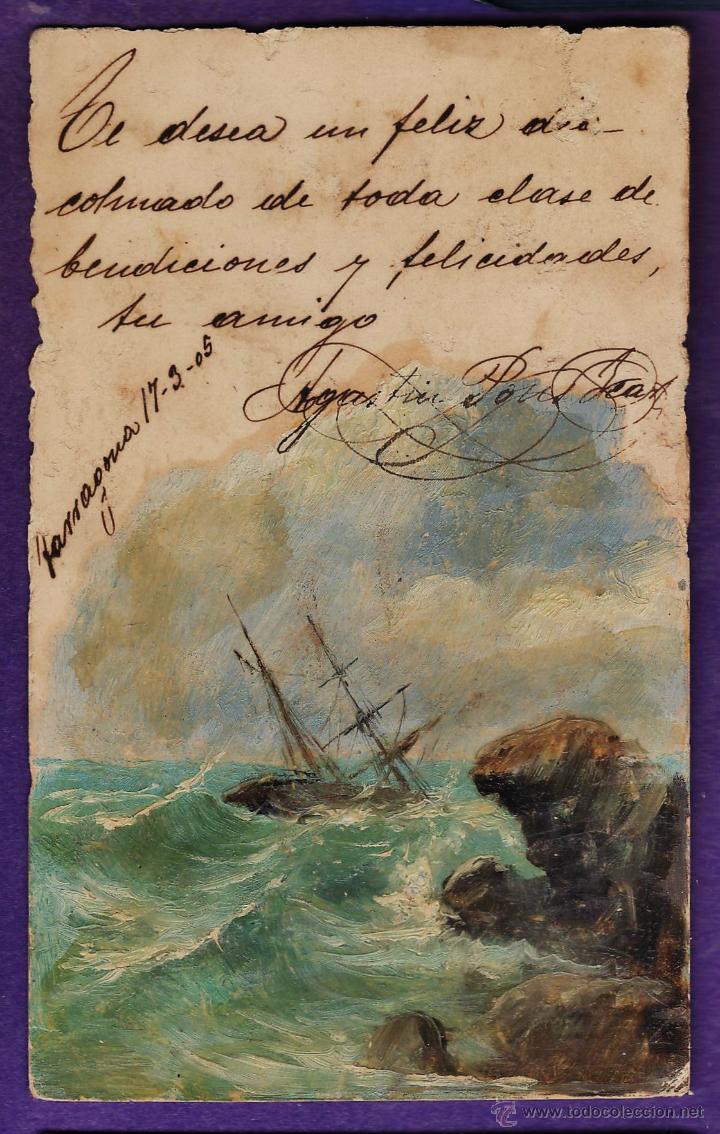 Te desea un feliz dia
colmado de toda clase de
bendiciones y felicidades,
tu amigo
Agustin Pons
Tarragona 17-3-05
www.todocoleccion.net